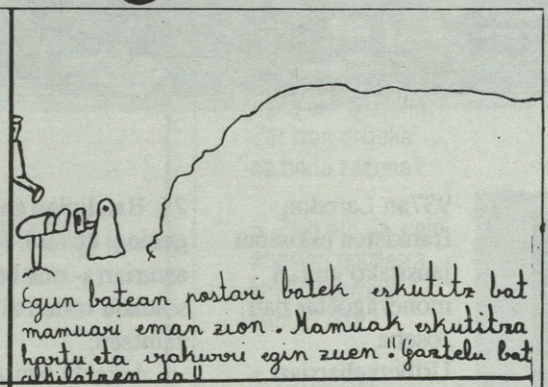 Egun batean postari batek eskutitz bat
mamuari eman zion. Mamuak eskutitza
hartu eta irakurri egin zuen! Gaztelu bat
alkilatzen da!!